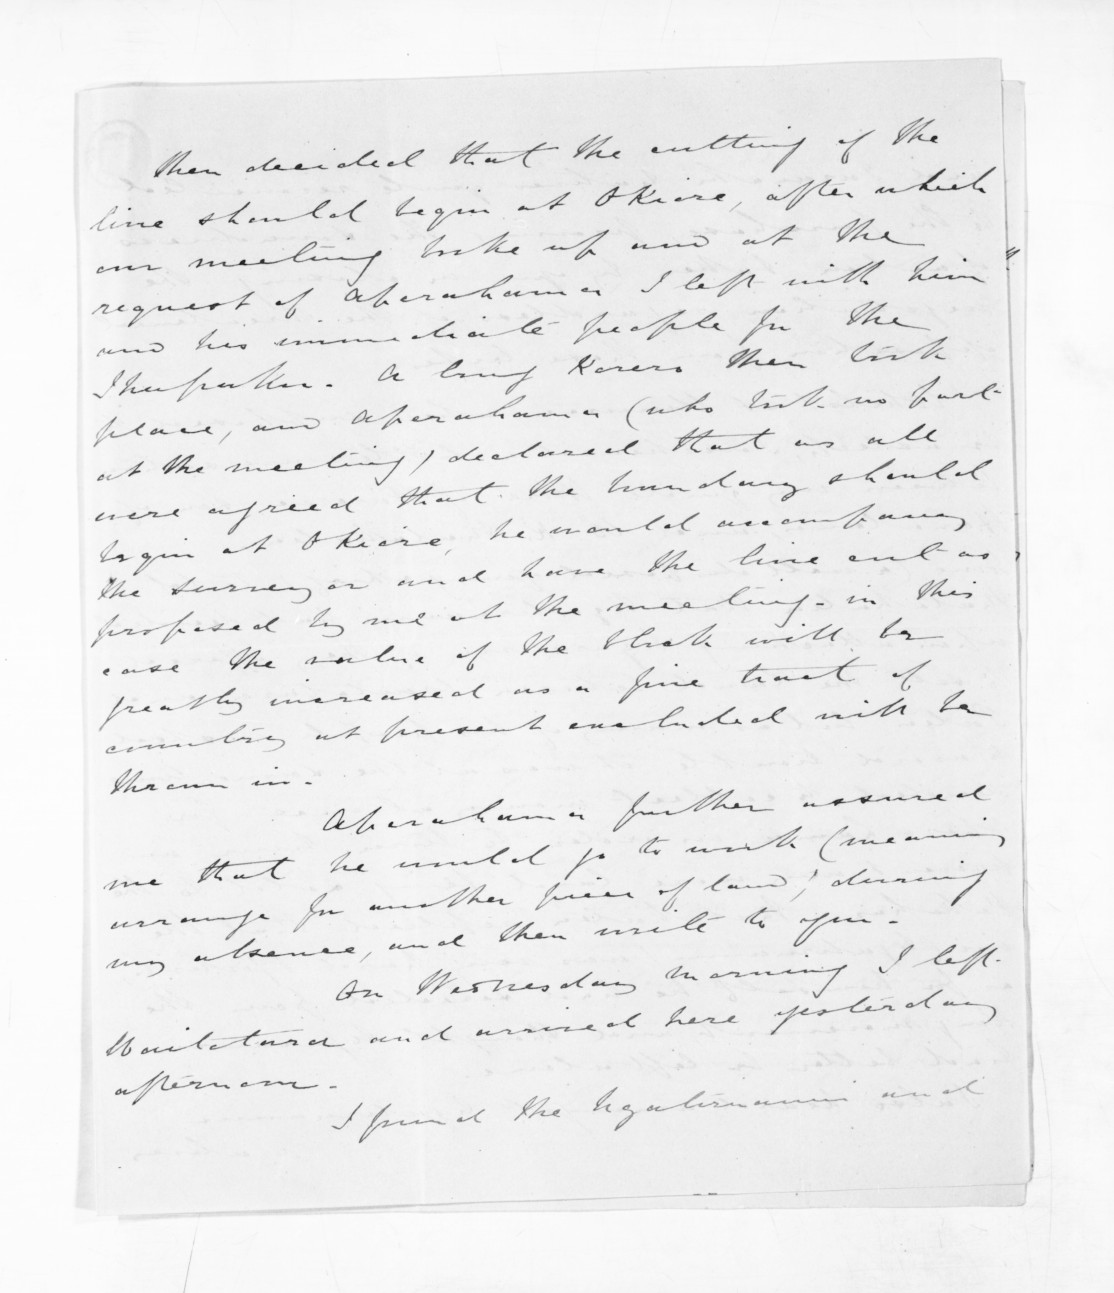 then decided that the cutting of the
line should begin at Okiore, after which
our meeting broke up and at the
request of Aperahama I left with him
and his immediate people for the
A long Korero then took
place, and Aperahama (who took no part
at the meeting) declared that as all
were agreed that the boundary should
begin at Okiore, he would accompany
the surveyor and have the line cut as
proposed by me at the meeting. in this
case the value of the block will be
greatly increased as a fine tract of
country at present excluded will be
thrown in.
Aperahama further assured
me that he would go to work (meaning
arrange for another piece of land) during
my absence, and then write to you.
On Wednesday morning I left
Waitotara and arrived here yesterday
afternoon.
I found the and